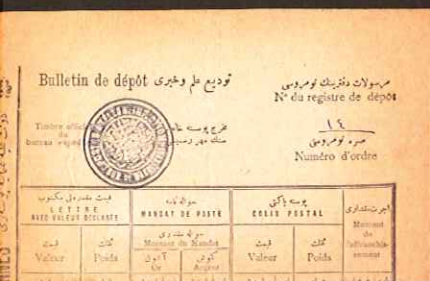 Bulletin de dépôt توديع علم و خبرى
مرسولات دفترينك نومروسى
Nº du registre de dépôt
١٤
صره نومروسى
Numéro d'ordre
Timbre
du
bureau
مخرج پوسته
قيمت مقدره لى مكتوب
LETTRE
AVEC VALEUR DECLARÉE
حواله نامه
MANDAT DE POSTE
پوسته پاكتى
COLIS POSTAL
اجرت مقدارى
Montant
de
l'affranchis-
sement
قيمت
Valeur
ثقلت
Poids
حواله مقدارى
Montant du Mandat
آلتون
Or
Argent
قيمت
Valeur
ثقلت
Poids